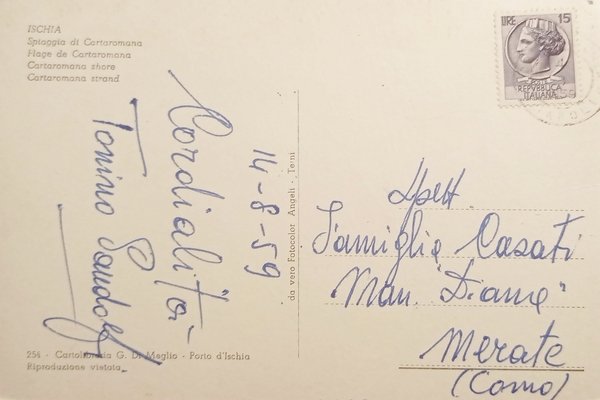 ISCHIA
Spiaggia di Cartaromana
Plage de Cartaromana
Cartaromana shore
Cartaromana strand
LIRE 15
REPVBBLICA
ITALIANA
14-8-59
Cordialità
Tonino
da vero Fotocolor Angeli - Terni
Spett
Famiglia Casati
Man. "Diana"
Merate
(Como)
254 - Cartolibreria G. Di Meglio - Porto d'Ischia
Riproduzione vietata